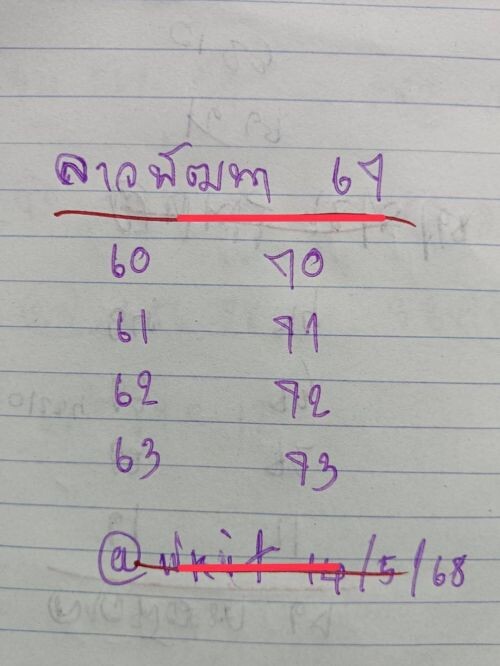 ลาวพัฒนา 67
60 70
61 71
62 72
63 73
@ 14/5/68